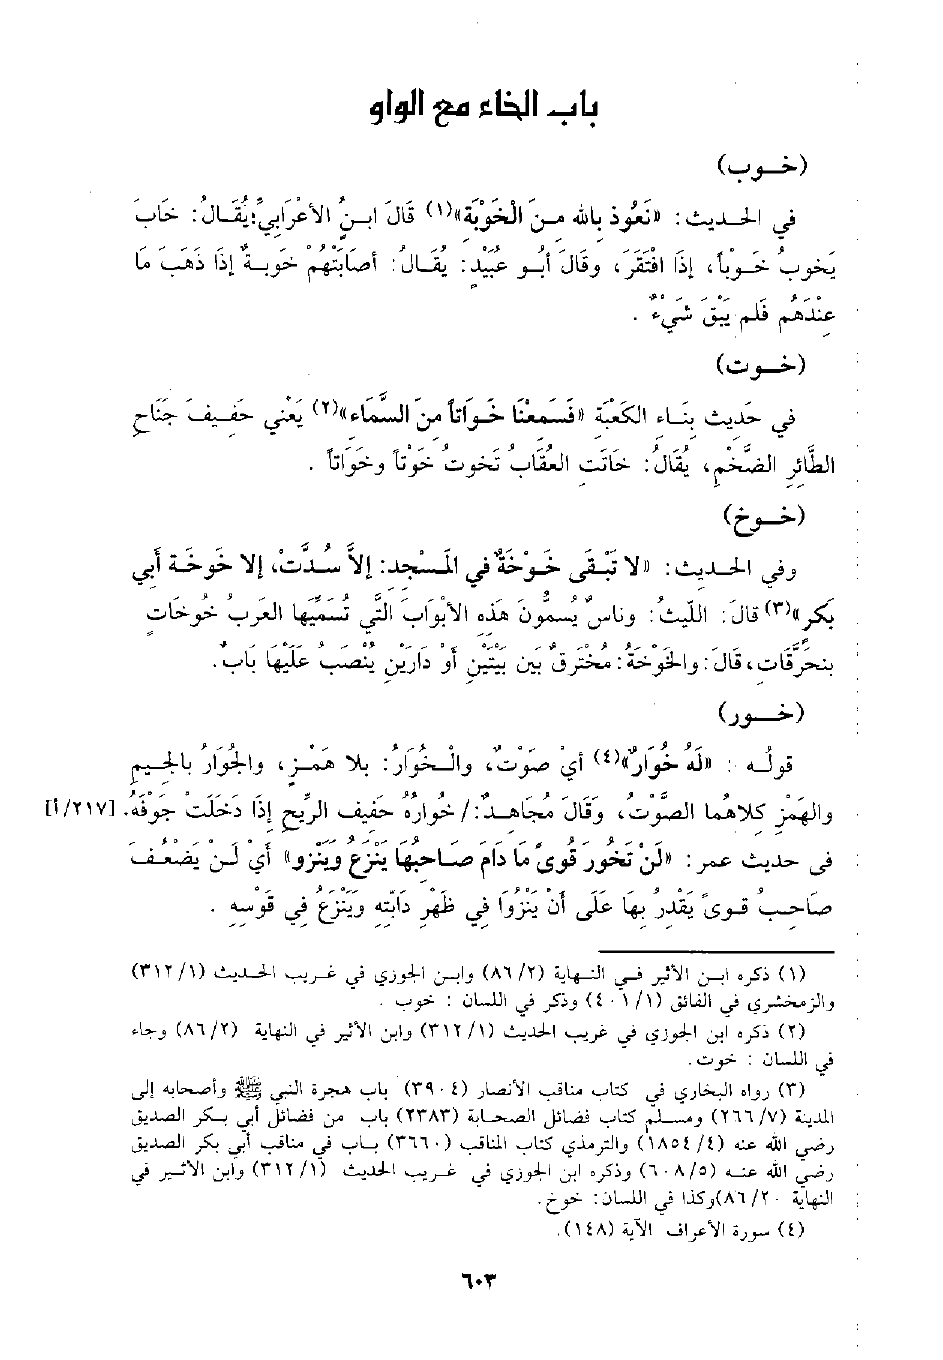 باب الخاء مع الواو
(خـوب)
في الحـديث: «نَعُوذ بالله مـنَ الْخَوْبَة»(١) قَالَ ابـنُ الأعْرَابيِّ: يُقَـالُ: خَابَ
يَخوبُ خَـوباً، إذَا افْتَقَرَ، وقَالَ أبُـو عُبَيْدٍ: يقَـالُ: أصَابَتْهُمْ خَوبـةٌ إذَا ذَهَبَ مَا
عِنْدَهُم فَلم يَبْقَ شَيْءٌ .
(خـوت)
في حَديث بِنَـاء الكَعْبَة «فَسَمعْنَا خَـوَاتاً منَ السَّمَاء»(٢) يَعْني حَفـيفَ جَنَاحِ
الطَّائِرِ الضَّخْمِ، يُقَالُ: خَاتَتِ العُقَابُ تَخوتُ خَوْتاً وخَوَاتاً .
(خـوخ)
وفي الحـديث: «لا تَبْقَى خَـوْخَةٌ في المَسْجد: إلاَّ سُـدَّتْ، إلا خَوخَـة أبي
بَكر»(٣) قالَ: اللَّيثُ: وناسٌ يُسمُّونَ هَذه الأبْوابَ الَّتي تُسَمِّيهَا العَربُ خُوخَاتٍ
بنحَرَّقَات، قَالَ: والخَوْخَةُ: مُخْتَرقٌ بَين بَيْتَيْنِ أوْ دَارَينِ يُنْصَبُ عَلَيْهَا بَابٌ.
(خـور)
قولُـه : «لَهُ خُوَارٌ»(٤) أيْ صَوْتٌ، والْـخُوَارُ: بلا هَمْـزٍ، والجُوَارُ بالجِيـمِ
والهَمْزِ كلاهُما الصَّوْتُ، وَقَالَ مُجَاهـدٌ:/ خُوارُهُ حَفيف الرِّيحِ إذَا دَخَلَتْ جَوفَهُ. [٢١٧/أ]
فى حديث عمر: «لَنْ تَخُورَ قوىً مَا دَامَ صَـاحبُهَا يَنْزَع وَيَنْزو» أيْ لَـنْ يَضْعُـفَ
صَاحـبُ قـوىً يَقْدرُ بهَا عَلَى أنْ يَنْزُوا فِي ظَهْرِ دَابَّتِهِ وَيَنْزَعُ فِي قَوْسِهِ .
(١) ذكره ابـن الأثير فـي النـهاية (٨٦/٢) وابـن الجوزي في غـريب الحـديث (٣١٢/١)
والزمخشري في الفائق (٤٠١/١) وذكر في اللسان : خوب .
(٢) ذكره ابن الجوزي في غريب الحديث (٣١٢/١) وابن الأثير في النهاية (٨٦/٢) وجاء
في اللسان : خوت.
(٣) رواه البخاري في كتاب مناقب الأنصار (٣٩٠٤) باب هجرة النبي ﷺ وأصحابه إلى
المدينة (٢٦٦/٧) ومسـلم كتاب فضائل الصحابة (٢٣٨٣) باب من فضائل أبي بـكر الصديق
رضي الله عنه (١٨٥٤/٤) والترمذي كتاب المناقب (٣٦٦٠) بـاب في مناقب أبي بكر الصديق
رضي الله عنـه (٦٠٨/٥) وذكره ابن الجوزي في غـريب الحديث (٣١٢/١) وابن الأثـير في
النهاية ٨٦/٢٠)وكذا في اللسان: خوخ.
(٤) سورة الأعراف الآية (١٤٨).
٦٠٣